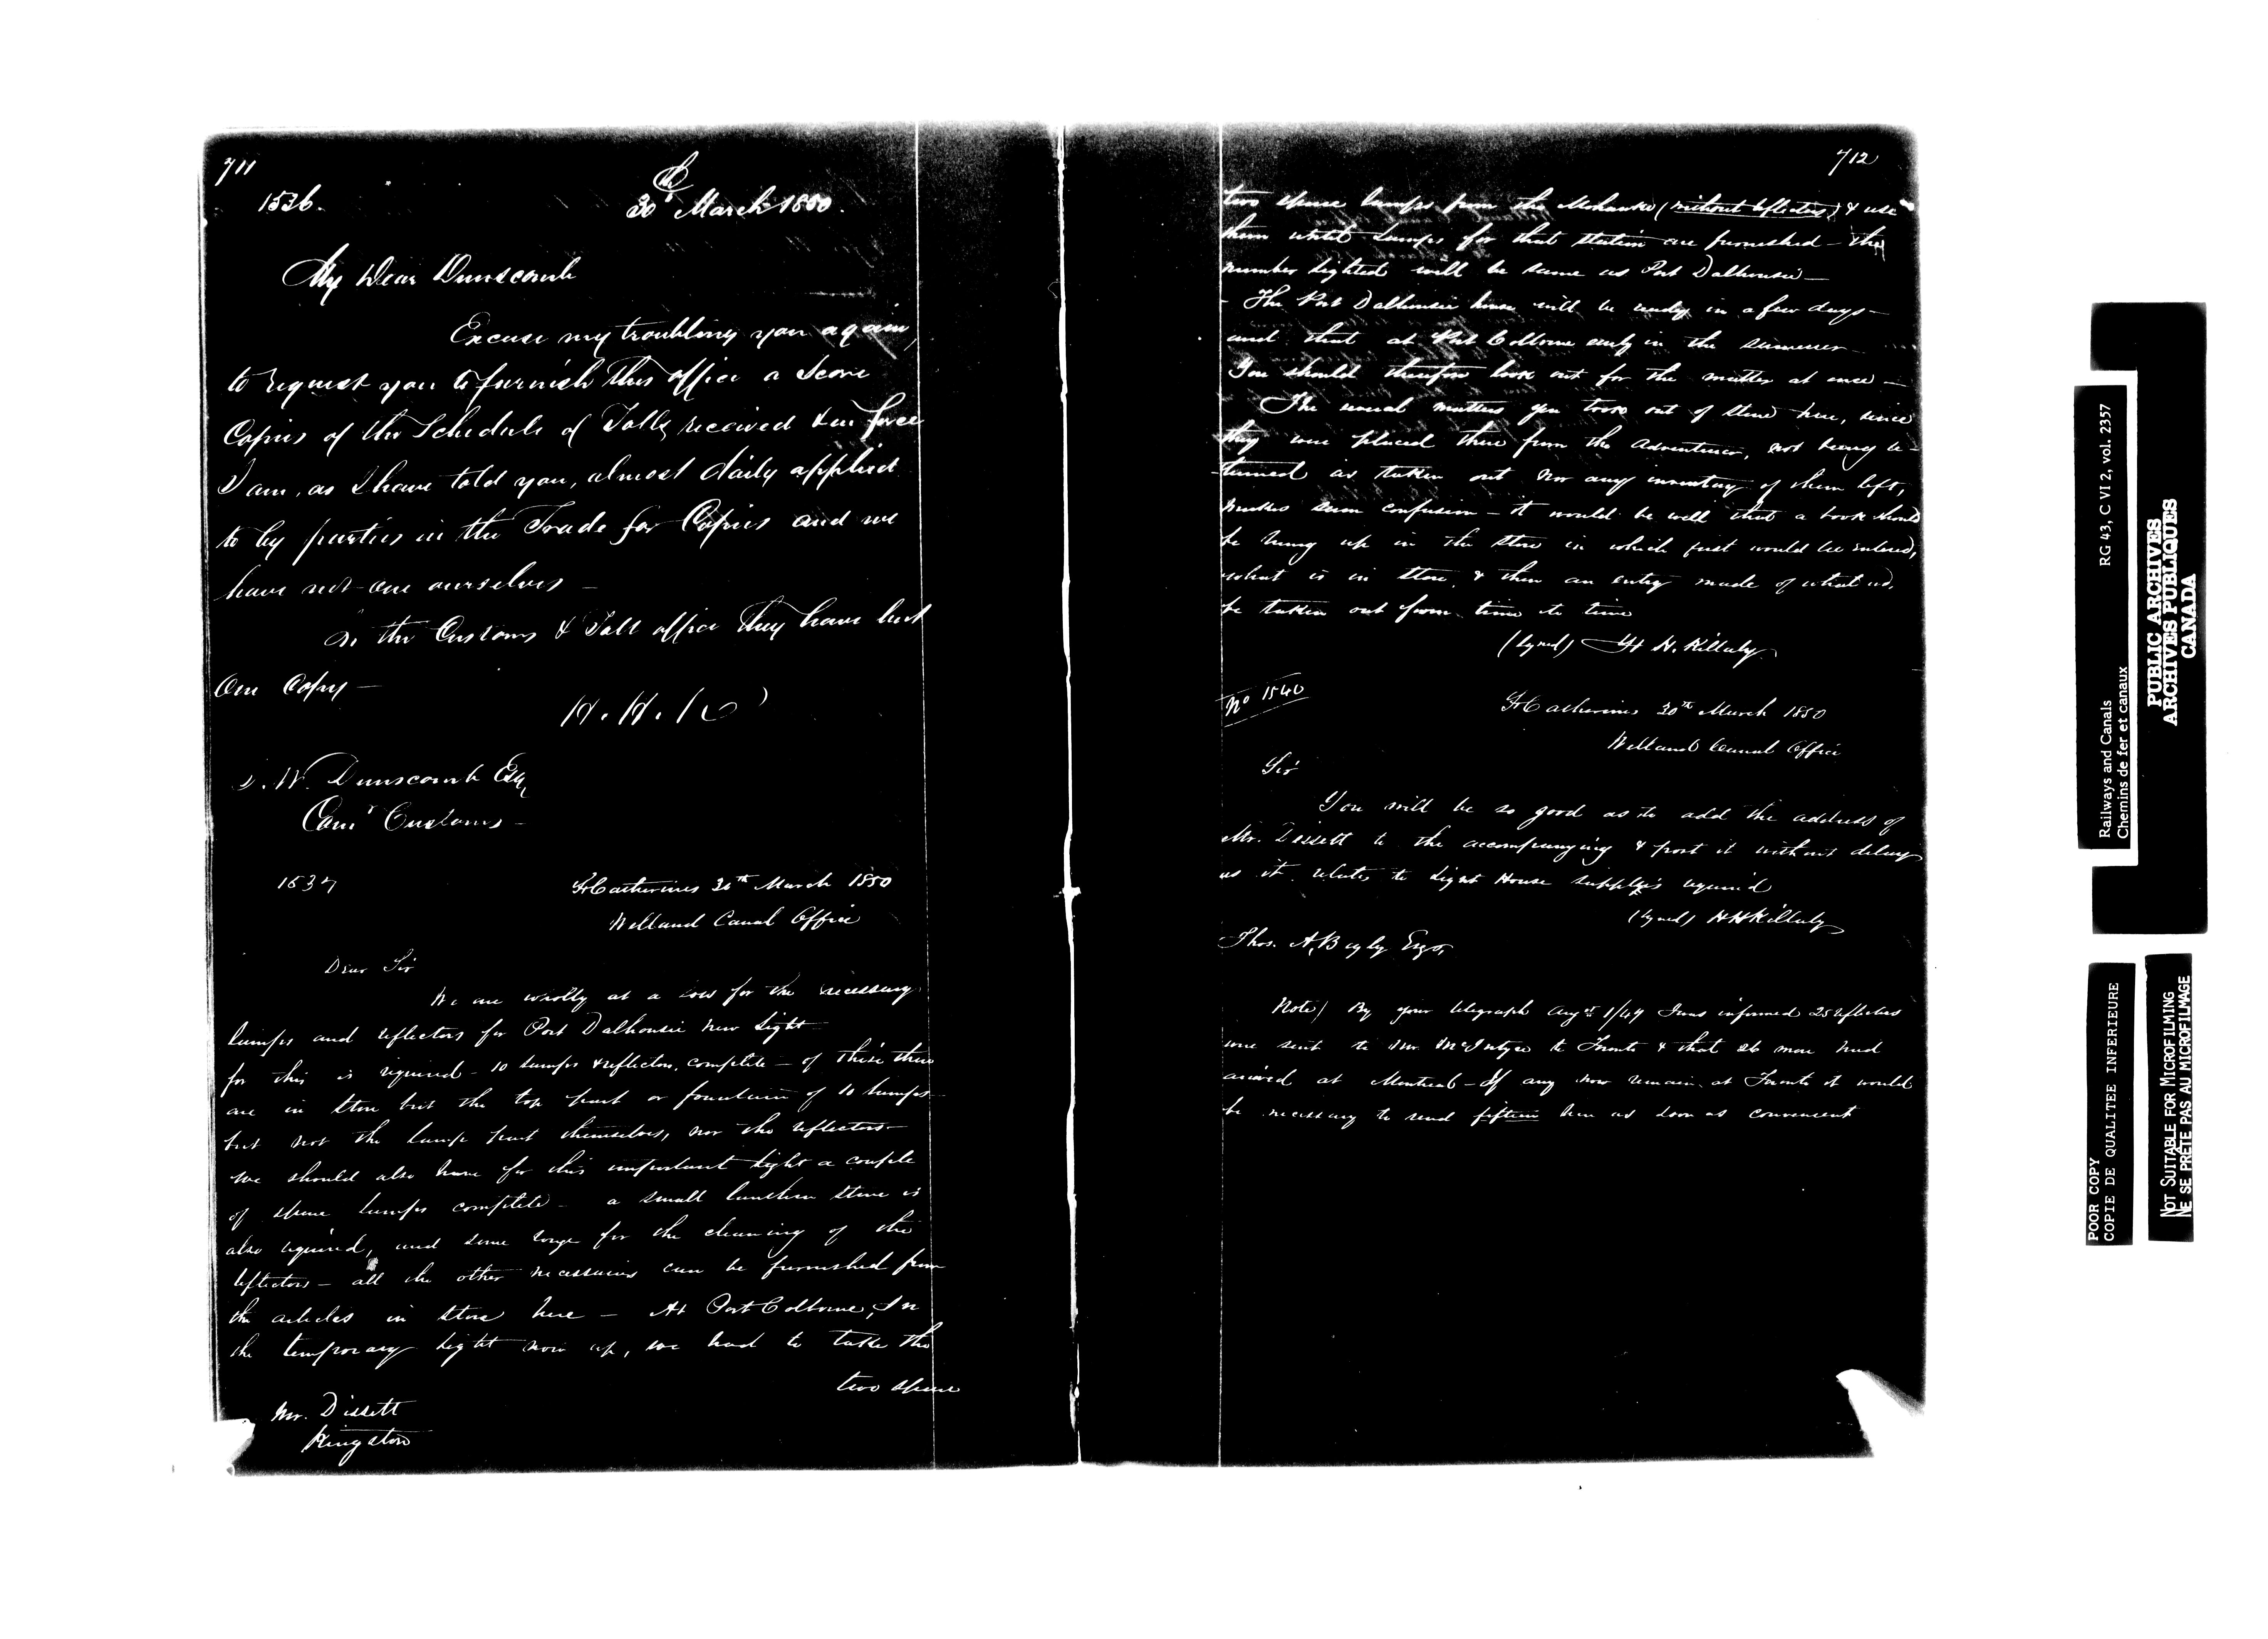 711
1536.
30th March 1850.
My Dear Dunscomb
Excuse my troubling you again,
to request you to furnish this office a score
Copies of the Schedule of Tolls received & in force
I am, as I have told you, almost daily applied
to by parties in the Trade for Copies and we
have not one ourselves —
In the Customs & Toll office they have but
One Copy —
H. H. K
J. W. Dunscomb Esq
Comr Customs —
1537
St Catherines 30th March 1850
Welland Canal Office
Dear Sir
We are wholly at a loss for the necessary
lamps and reflectors for Port Dalhousie new Light —
for this is required - 10 lamps & reflectors, complete — of these there
are in store but the top part or fountain of 10 lamps —
but not the lamp part themselves, nor the reflectors —
We should also have for this important light a couple
of spare lamps complete — a small lanthern stove is
also required, and some rouge for the cleaning of the
reflectors — all the other necessaries can be furnished from
the articles in store here — At Port Colborne, In
the temporary light now up, we had to take the
two spare
Mr. Dissett
Kingston
712
two spare lamps from the Mohawke (without reflectors) & use
them until Lamps for that Station are furnished — the
number lighted will be same as Port Dalhousie —
- The Port Dalhousie house will be ready in a few days —
and that at Port Colborne early in the summer —
You should therefore look out for the matter at once —
The usual matters you took out of store here, since
they were placed there from the Adventurer, not being re-
-turned as taken out nor any inventory of them left,
makes some confusion — it would be well that a book should
be hung up in the store in which first would be entered,
what is in store, & then an entry made of what wd.
be taken out from time to time
(Signed) H H. Killaly
No 1540
St Catherines 30th March 1850
Welland Canal Office
Sir
You will be so good as to add the address of
Mr. Dissett to the accompanying & post it without delay
as it relates to Light House supplies requir'd
(Signed) H H Killaly
Thos. A. Begly Esqr,
Note/ By your telegraph Augt 1/49 I was informed 25 reflectors
were sent to Mr. McIntyre to Toronto & that 26 more had
arrived at Montreal — If any now remain at Toronto it would
be necessary to send fifteen here as soon as convenient
RG 43, C VI 2, vol. 2357
Railways and Canals
Chemins de fer et canaux
PUBLIC ARCHIVES
ARCHIVES PUBLIQUES
CANADA
POOR COPY
COPIE DE QUALITEE INFERIEURE
NOT SUITABLE FOR MICROFILMING
NE SE PRETE PAS AU MICROFILMAGE